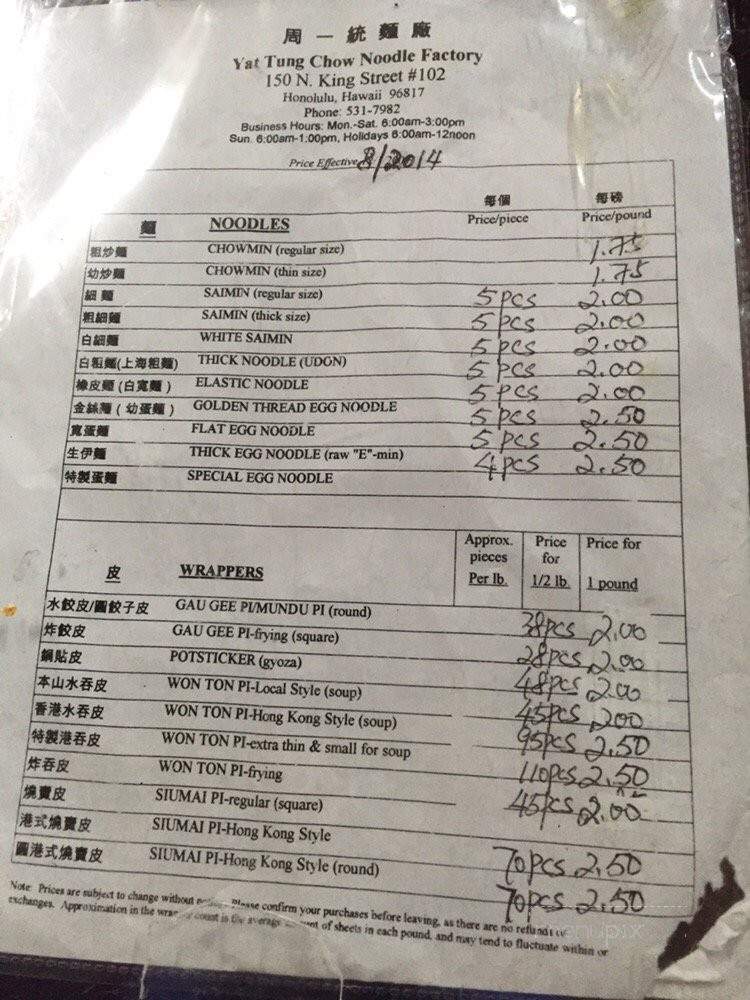 周一統麵廠
Yat Tung Chow Noodle Factory
150 N. King Street #102
Honolulu, Hawaii 96817
Phone: 531-7982
Business Hours: Mon.-Sat. 6:00am-3:00pm
Sun. 6:00am-1:00pm, Holidays 6:00am-12noon
Price Effective 8/2014
每個 每磅
麵 NOODLES Price/piece Price/pound
粗炒麵 CHOWMIN (regular size) 1.75
幼炒麵 CHOWMIN (thin size) 1.75
細麵 SAIMIN (regular size) 5pcs 2.00
粗細麵 SAIMIN (thick size) 5pcs 2.00
白細麵 WHITE SAIMIN 5pcs 2.00
白粗麵(上海粗麵) THICK NOODLE (UDON) 5pcs 2.00
橡皮麵 (白寬麵) ELASTIC NOODLE 5pcs 2.00
金絲麵 (幼蛋麵) GOLDEN THREAD EGG NOODLE 5pcs 2.50
寬蛋麵 FLAT EGG NOODLE 5pcs 2.50
生伊麵 THICK EGG NOODLE (raw "E"-min) 4pcs 2.50
特製蛋麵 SPECIAL EGG NOODLE
Approx. Price Price for
pieces for
皮 WRAPPERS Per lb. 1/2 lb. 1 pound
水餃皮/圓餃子皮 GAU GEE PI/MUNDU PI (round) 38pcs 2.00
炸餃皮 GAU GEE PI-frying (square) 28pcs 2.00
鍋貼皮 POTSTICKER (gyoza) 48pcs 2.00
本山水吞皮 WON TON PI-Local Style (soup) 45pcs 2.00
香港水吞皮 WON TON PI-Hong Kong Style (soup) 95pcs 2.50
特製港吞皮 WON TON PI-extra thin & small for soup 110pcs 2.50
炸吞皮 WON TON PI-frying 45pcs 2.00
燒賣皮 SIUMAI PI-regular (square)
港式燒賣皮 SIUMAI PI-Hong Kong Style 70pcs 2.50
圓港式燒賣皮 SIUMAI PI-Hong Kong Style (round) 70pcs 2.50
Note: Prices are subject to change without Please confirm your purchases before leaving, as there are no refunds
exchanges. Approximation in the count is the average of sheets in each pound, and may tend to fluctuate within or
menupix